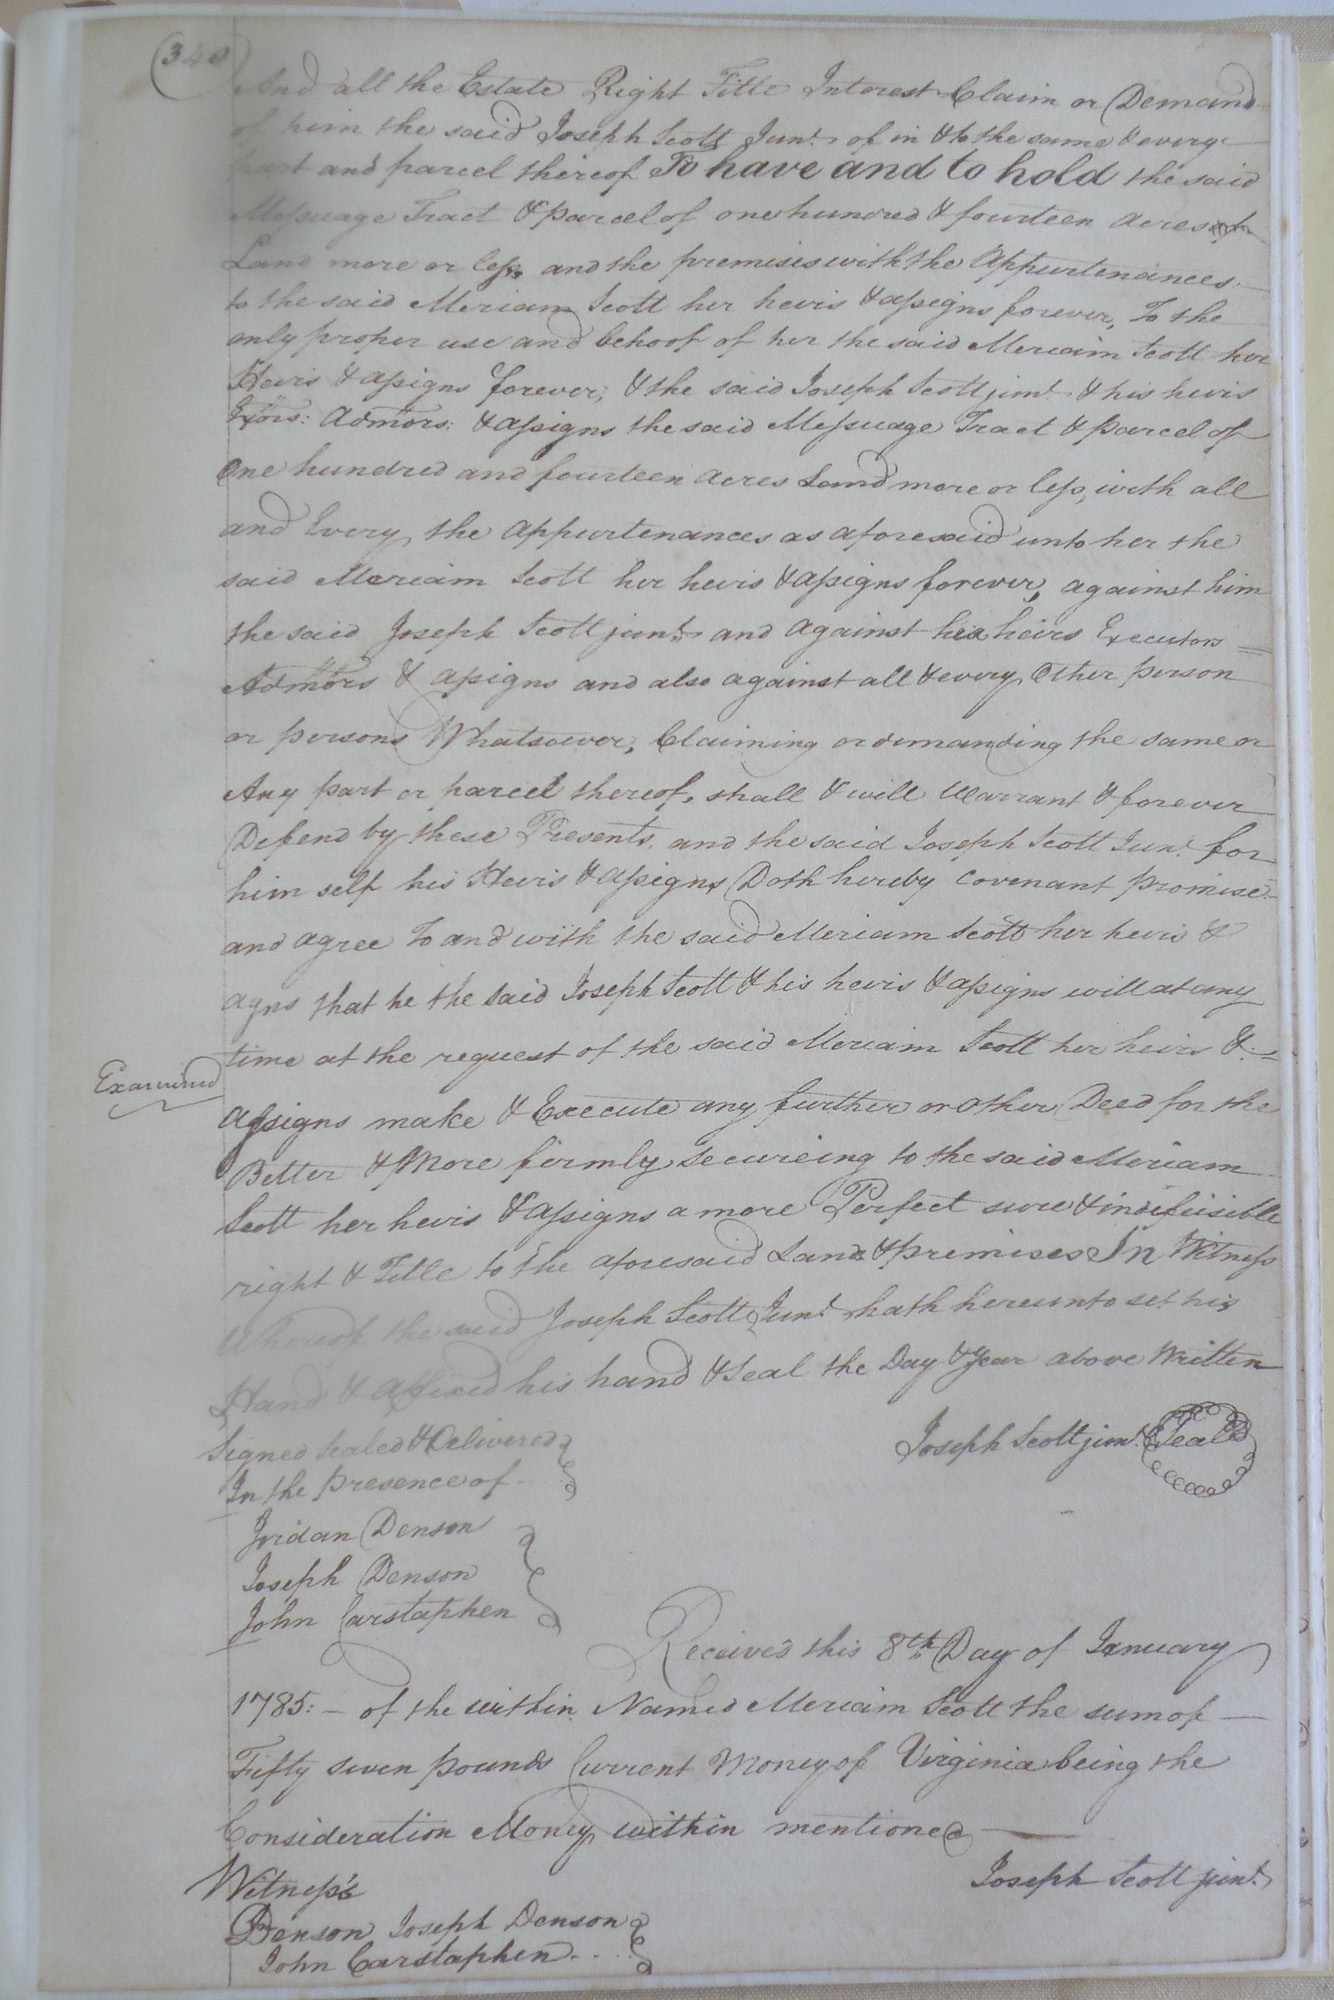 (340)
And all the Estate Right Title Interest Claim or Demand
of him the said Joseph Scott Junr. of in & to the same & every
part and parcel thereof To have and to hold the said
Messuage Tract & parcel of one hundred & fourteen acres of
Land more or less, and the premises with the Appurtenances
to the said Meriam Scott her heirs & assigns forever, To the
only proper use and behoof of her the said Meriam Scott her
Heirs & assigns forever; & the said Joseph Scott junr. & his heirs
Exors: Admors: & assigns the said Messuage Tract & parcel of
One hundred and fourteen acres Land more or less, with all
and Every the appurtenances as aforesaid unto her the
said Meriam Scott her heirs & assigns forever, against him
the said Joseph Scott junr. and against his heirs Executors
Admors & assigns and also against all & every Other person
or persons Whatsoever, Claiming or demanding the same or
Any part or parcel thereof, shall & will Warrant & forever
Defend by these Presents, and the said Joseph Scott Junr. for
him self his Heirs & assigns Doth hereby covenant promise
and agree To and with the said Meriam Scott her heirs &
agns that he the said Joseph Scott & his heirs & assigns will at any
time at the request of the said Meriam Scott her heirs &
Examined
assigns make & Execute any further or other Deed for the
Better & More firmly secureing to the said Meriam
Scott her heirs & assigns a more Perfect sure & indefeisible
right & Title to the aforesaid Land & premises In Witness
Whereof the said Joseph Scott Junr. hath hereunto set his
Hand & affixed his hand & Seal the Day & Year above Written
Signed sealed & Delivered
In the presence of
Joseph Scott junr. Seal
Jordan Denson
Joseph Denson
John Carstaphen
Received this 8th Day of January
1785: — of the within Named Meriam Scott the sum of —
Fifty seven pounds Current Money of Virginia being the
Consideration Money within mentioned —
Joseph Scott junr.
Witness's
Denson Joseph Denson
John Carstaphen ...